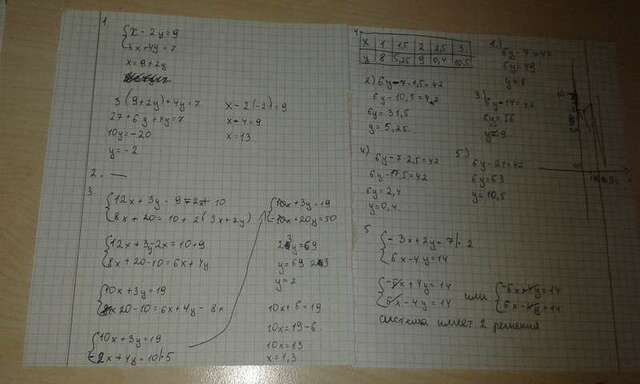 1.
x - 2y = 9
3x + 4y = 7
x = 9 + 2y
3(9 + 2y) + 4y = 7
27 + 6y + 4y = 7
10y = -20
y = -2
x - 2(-2) = 9
x + 4 = 9
x = 13
2. —
3.
12x + 3y - 9 = 2x + 10
8x + 20 = 10 + 2(3x + 2y)
12x + 3y - 2x = 10 + 9
8x + 20 - 10 = 6x + 4y
10x + 3y = 19
20 - 10 = 6x + 4y - 8x
10x + 3y = 19
-2x + 4y = 10 | · 5
10x + 3y = 19
-10x + 20y = 50
23y = 69
y = 69 : 23
y = 2
10x + 6 = 19
10x = 19 - 6
10x = 13
x = 1,3
4.
x 1 1,5 2 2,5 3
y 8 5,25 9 0,4 10,5
1.)
6y - 7 = 42
6y = 49
y = 8
2) 6y - 7 · 1,5 = 42
6y - 10,5 = 42
6y = 31,5
y = 5,25
3) 6y - 14 = 42
6y = 56
y = 9
4) 6y - 7 · 2,5 = 42
6y - 17,5 = 42
6y = 2,4
y = 0,4
5) 6y - 21 = 42
6y = 63
y = 10,5
5
-3x + 2y = 7 | · 2
6x - 4y = 14
-6x + 4y = 14
6x - 4y = 14
или
-6x + 4y = 14
6x - 4y = 14
система имеет 2 решения